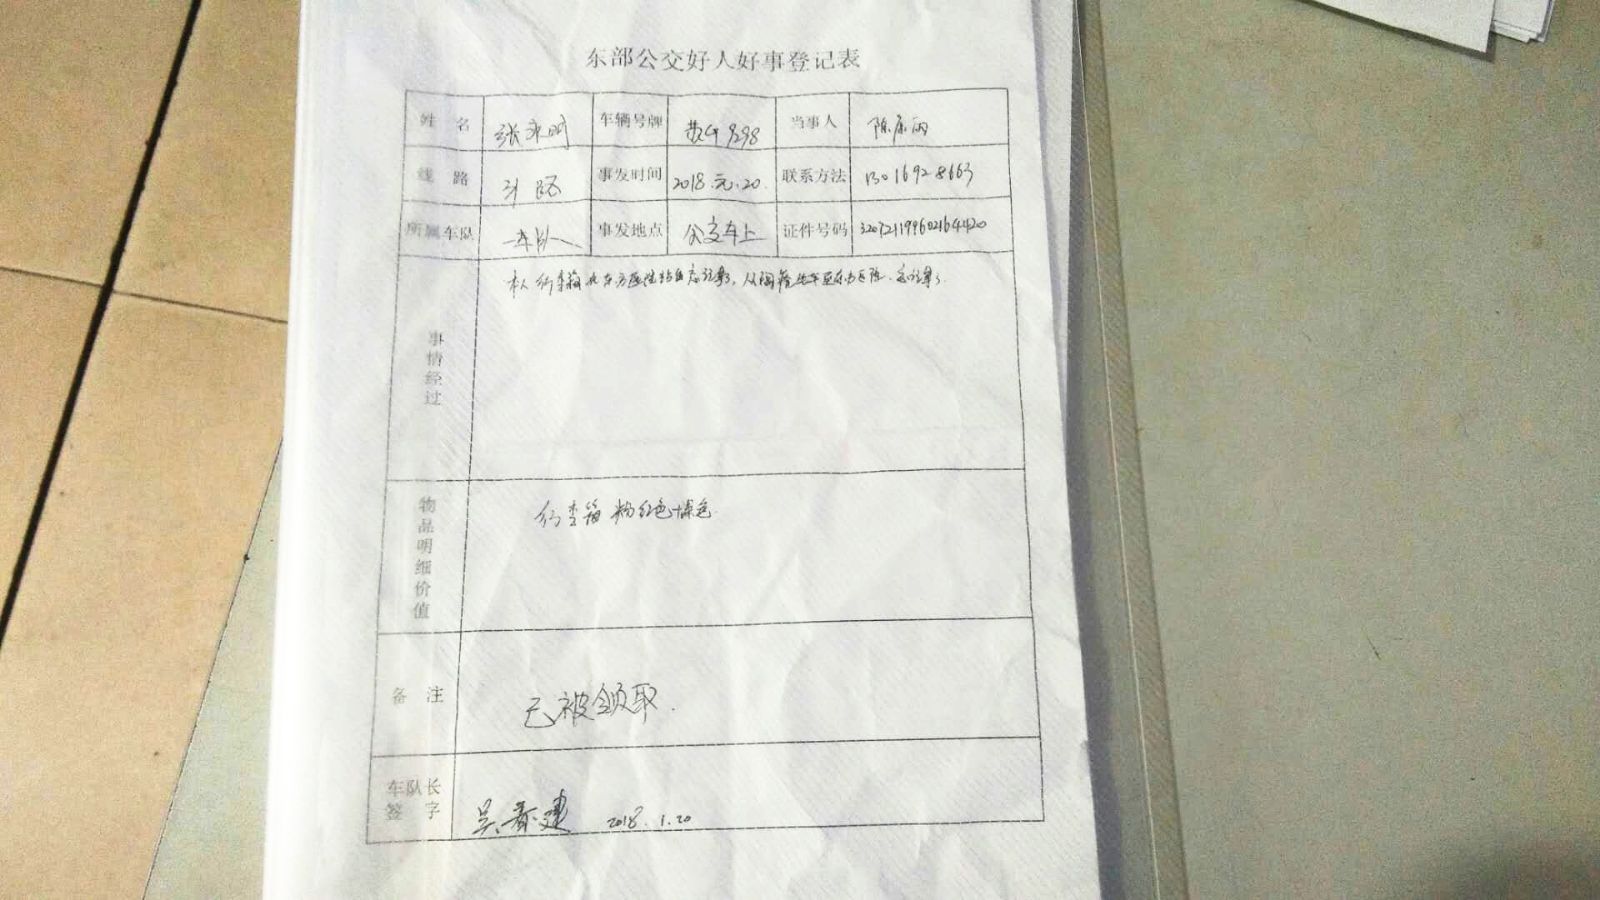 东部公交好人好事登记表
姓 名 张 明 车辆号牌 9298 当事人 陈
线 路 路 事发时间 2018.元.20. 联系方法 13016928663
所属车队 一车队 事发地点 公交车上 证件号码 320721199602164420
事情经过 本人行李箱在东方医院站忘记拿了,从 坐车至东方医院.忘记拿了
物品明细价值 行李箱 粉红色+绿色
备 注 已被领取.
车队长签字 吴春建 2018.1.20